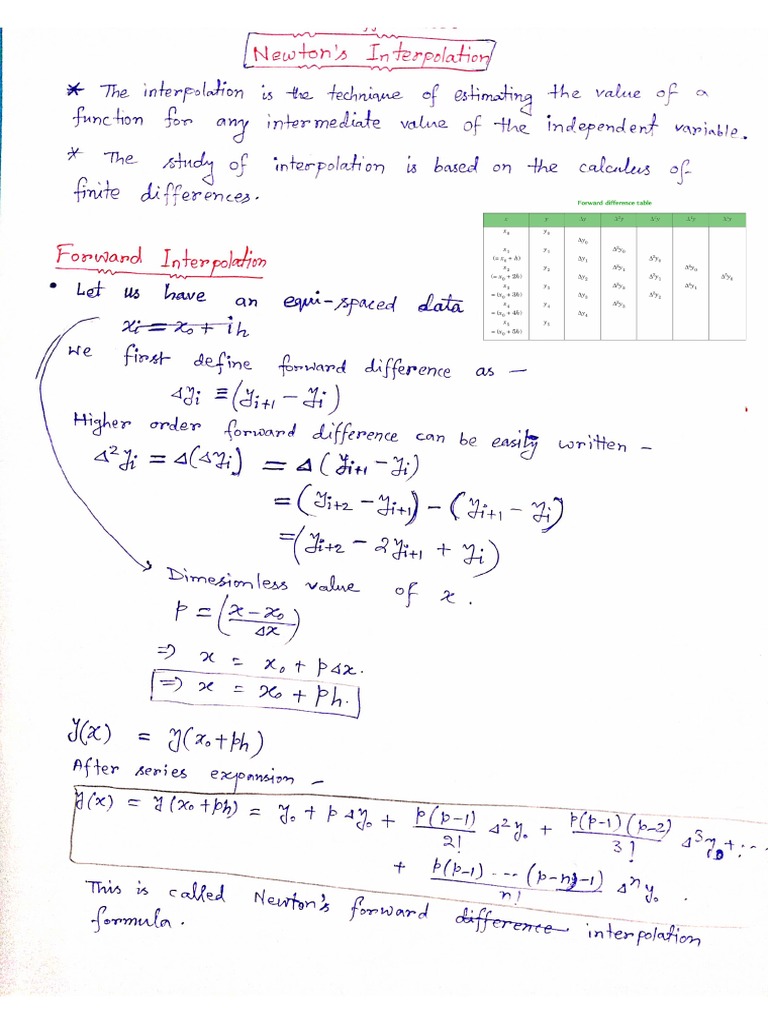 Newton's Interpolation
* The interpolation is the technique of estimating the value of a
function for any intermediate value of the independent variable.
* The study of interpolation is based on the calculus of
finite differences.
Forward difference table
x y Δy Δ²y Δ³y Δ⁴y Δ⁵y
x₀ y₀
Δy₀
x₁ y₁ Δ²y₀
(= x₀ + h) Δy₁ Δ³y₀
x₂ y₂ Δ²y₁ Δ⁴y₀
(= x₀ + 2h) Δy₂ Δ³y₁ Δ⁵y₀
x₃ y₃ Δ²y₂ Δ⁴y₁
= (x₀ + 3h) Δy₃ Δ³y₂
x₄ y₄ Δ²y₃
= (x₀ + 4h) Δy₄
x₅ y₅
= (x₀ + 5h)
Forward Interpolation
• Let us have an equi-spaced data
xᵢ = x₀ + ih
we first define forward difference as —
Δyᵢ ≡ (yᵢ₊₁ - yᵢ)
Higher order forward difference can be easily written —
Δ²yᵢ = Δ(Δyᵢ) = Δ(yᵢ₊₁ - yᵢ)
= (yᵢ₊₂ - yᵢ₊₁) - (yᵢ₊₁ - yᵢ)
= (yᵢ₊₂ - 2yᵢ₊₁ + yᵢ)
Dimesionless value of x.
p = (x - x₀ / Δx)
⇒ x = x₀ + pΔx.
⇒ x = x₀ + ph.
y(x) = y(x₀+ph)
After series expansion —
y(x) = y(x₀+ph) = y₀ + pΔy₀ + p(p-1)/2! Δ²y₀ + p(p-1)(p-2)/3! Δ³y₀ + ...
+ p(p-1)...(p-n-1)/n! Δⁿy₀.
This is called Newton's forward difference interpolation
formula.